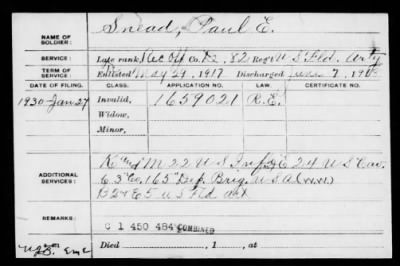 NAME OF SOLDIER: Snead, Paul E.
SERVICE: Late rank, Rec Off Co. 82 Reg't U S Fld. Arty
TERM OF SERVICE: Enlisted May 29, 1917 Discharged 7, 19
DATE OF FILING. CLASS. APPLICATION NO. LAW. CERTIFICATE NO.
1930-Jan-27 Invalid, 1659021 R.E.
Widow,
Minor,
ADDITIONAL SERVICES: M 22 U S Inf, E 24 U S Cav.
C 3" Co, 165" Dep. Brig. U S A
E 5 U S Fld art
REMARKS: C 1 450 484 COMBINED
Died , 1 , at